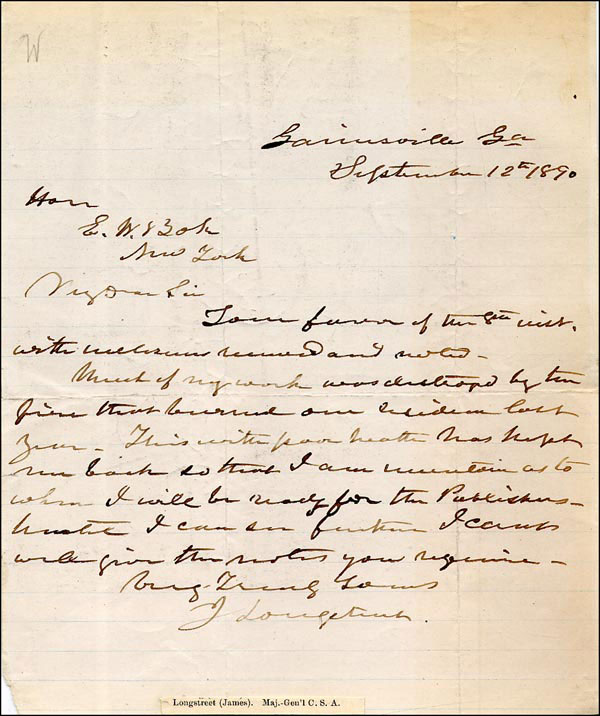 W
Gainesville Ga
September 12th 1890
Hon
E. W. Bok
New York
My Dear Sir
Your favor of the 8th inst.
with inclosure received and noted -
Much of my work was destroyed by the
fire that burned our residence last
year - This with poor health has kept
me back so that I am uncertain as to
when I will be ready for the Publishers -
Until I can see further I cannot
well give the notes you require -
Very Truly Yours
J Longstreet.
Longstreet (James). Maj.-Gen'l C. S. A.